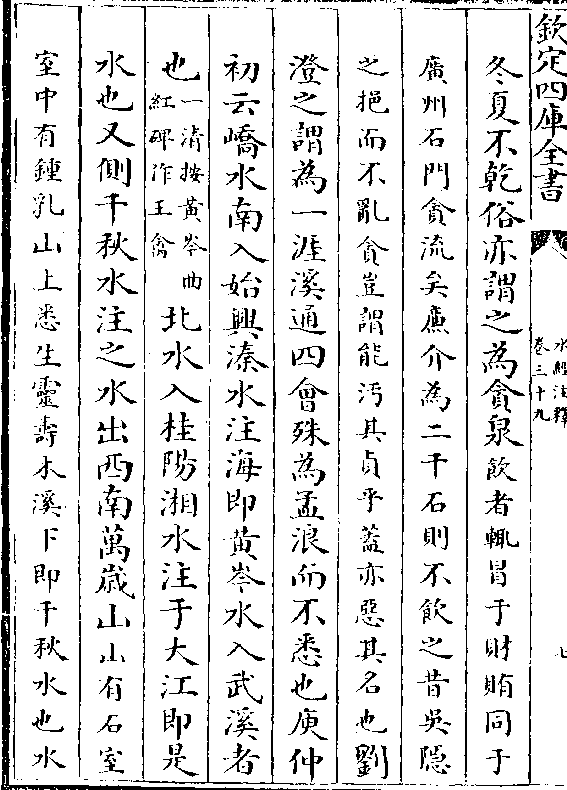 欽定四庫全書
水經注釋
卷三十九
七
冬夏不乾俗亦謂之為貪泉飲者輒冒于財賄同于
廣州石門貪流矣廉介為二千石則不飲之昔吳隱
之挹而不亂貪豈謂能污其貞乎蓋亦惡其名也劉
澄之謂為一涯溪通四會殊為孟浪而不悉也庾仲
初云嶠水南入始興溱水注海即黃岑水入武溪者
也一清按黃岑曲紅碑作王禽北水入桂陽湘水注于大江即是
水也又側千秋水注之水出西南萬歲山山有石室
室中有鍾乳山上悉生靈壽木溪下即千秋水也水